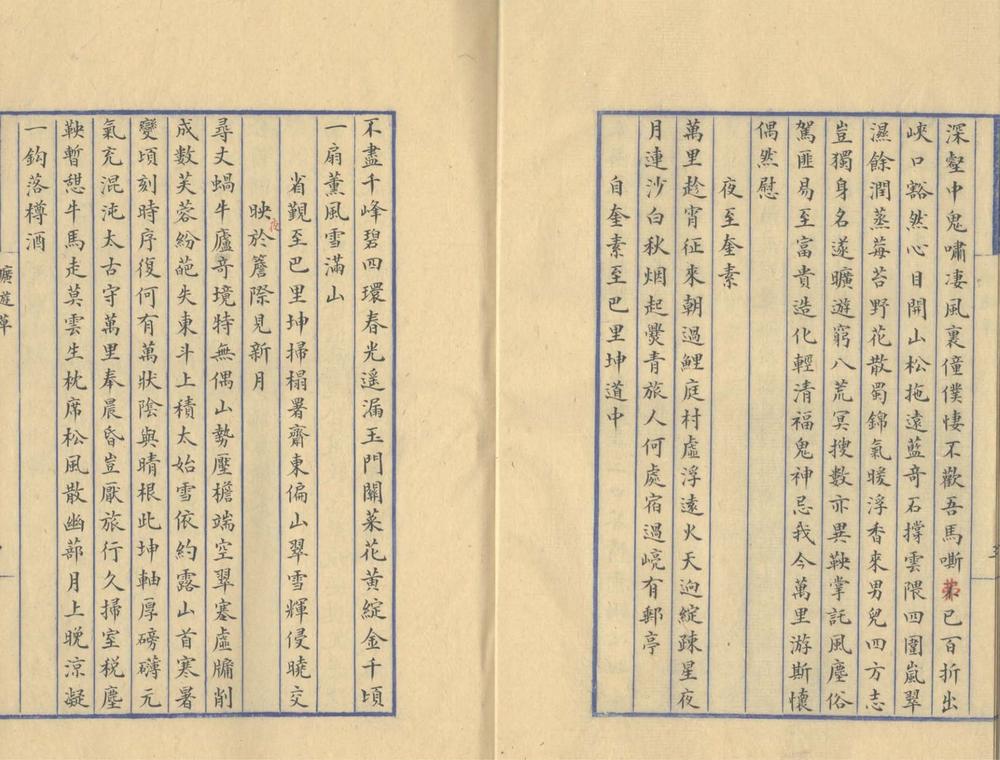 深壑中鬼嘯凄風裏僮僕悽不歡吾馬嘶苐已百折出
峽口豁然心目開山松拖遠藍奇石撐雲隈四圍嵐翠
濕餘潤蒸莓苔野花散蜀錦氣暖浮香來男兒四方志
豈獨身名遂曠遊窮八荒冥搜數亦異鞅掌託風塵俗
駕匪易至富貴造化輕清福鬼神忌我今萬里游斯懷
偶然慰
夜至奎素
萬里趁宵征來朝過鯉庭村虛浮遠火天迥綻疎星夜
月連沙白秋烟起爨青旅人何處宿過峣有郵亭
自奎素至巴里坤道中
不盡千峰碧四環春光遥漏玉門關菜花黃綻金千頃
一扇薰風雪滿山
省觐至巴里坤掃榻署齋東偏山翠雪輝侵曉交
映夜於簷際見新月
尋丈蝸牛廬奇境特無偶山勢壓檐端空翠塞虛牖削
成數芙蓉紛葩失東斗上積太始雪依約露山首寒暑
變頃刻時序復何有萬狀陰與晴根此坤軸厚磅礴元
氣充混沌太古守萬里奉晨昏豈厭旅行久掃室税塵
鞅暫憇牛馬走莫雲生枕席松風散幽蔀月上晚涼凝
一鈎落樽酒
曠遊草